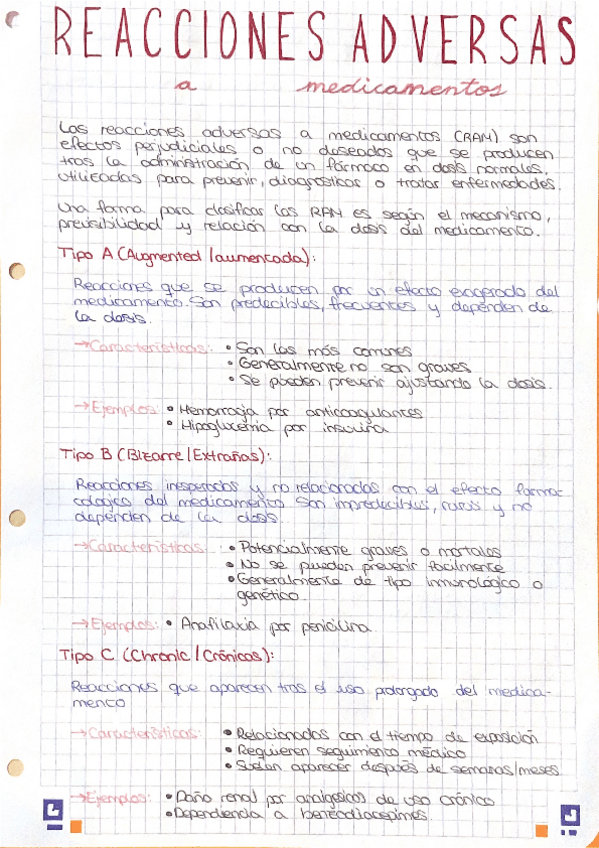 REACCIONES ADVERSAS
a medicamentos
Las reacciones adversas a medicamentos (RAM) son
efectos perjudiciales o no deseados que se producen
tras la administración de un fármaco en dosis normales,
utilizadas para prevenir, diagnosticar o tratar enfermedades.
Una forma para clasificar las RAM es según el mecanismo,
previsibilidad y relación con la dosis del medicamento.
Tipo A (Augmented/aumentada):
Reacciones que se producen por un efecto exagerado del
medicamento. Son predecibles, frecuentes y dependen de
la dosis.
→Características: • Son las más comunes
• Generalmente no son graves
• Se pueden prevenir ajustando la dosis.
→Ejemplos: • Hemorragia por anticoagulantes
• Hipoglucemia por insulina
Tipo B (Bizarre/Extrañas):
Reacciones inesperadas y no relacionadas con el efecto farma-
cológico del medicamento. Son impredecibles, raras y no
dependen de la dosis.
→Características: • Potencialmente graves o mortales
• No se pueden prevenir facilmente
• Generalmente de tipo inmunológico o
genético.
→Ejemplos: • Anafilaxia por penicilina.
Tipo C (Chronic/Crónicas):
Reacciones que aparecen tras el uso prolongado del medica-
mento
→Características: • Relacionadas con el tiempo de exposición
• Requieren seguimiento médico
• Suelen aparecer después de semanas/meses.
→Ejemplos: • Daño renal por analgésicos de uso crónico
• Dependencia a benzodiacepines.